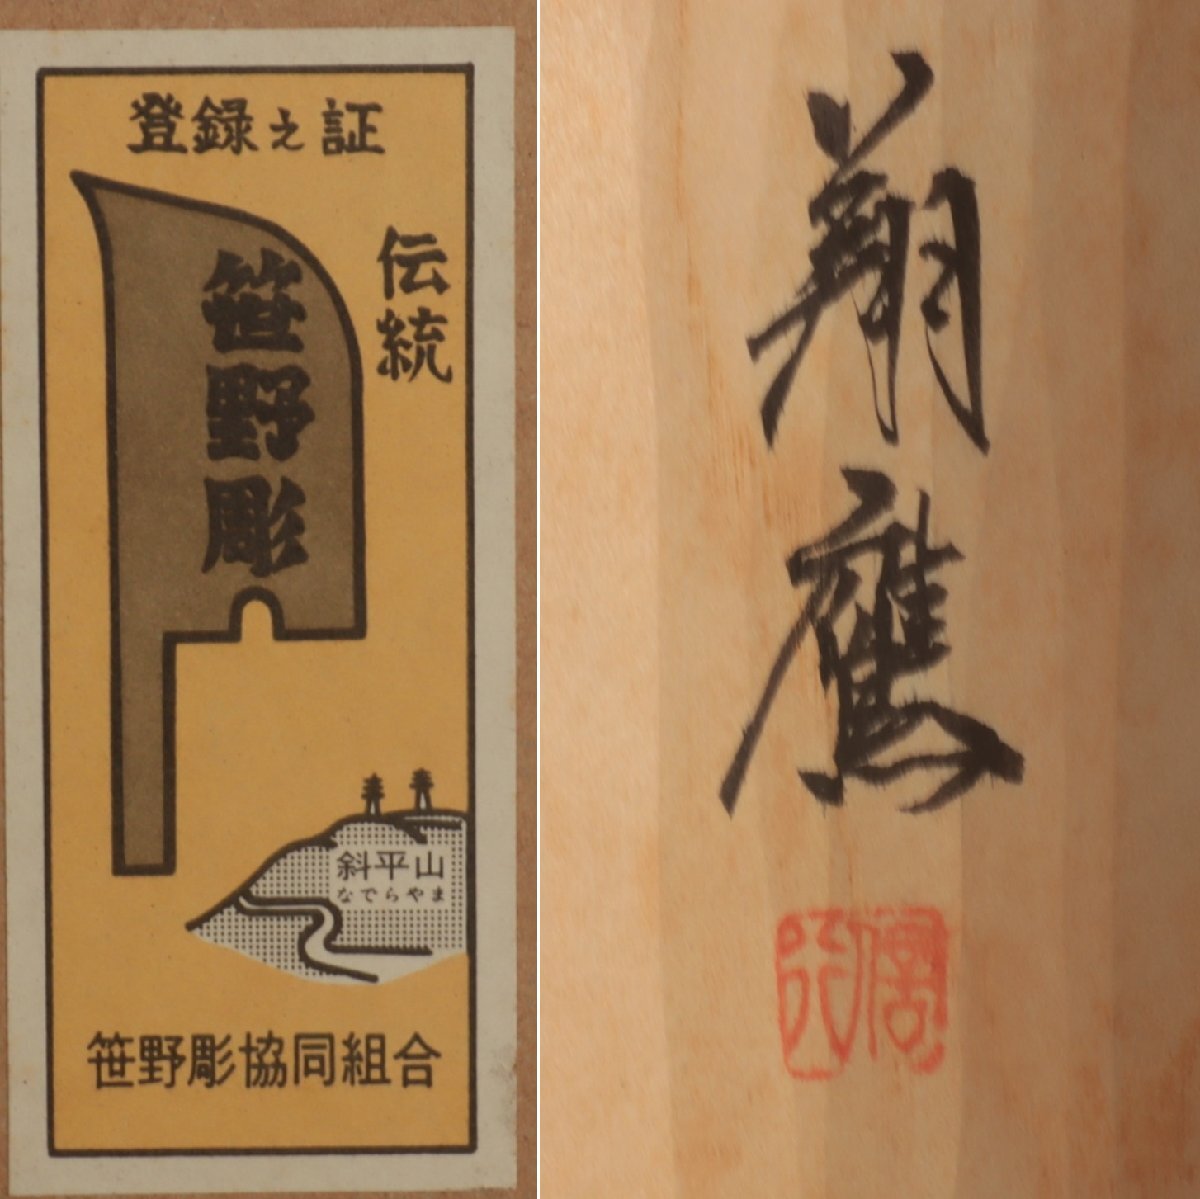 登録之証
伝統
笹野彫
斜平山
なでらやま
笹野彫協同組合
翔鷹